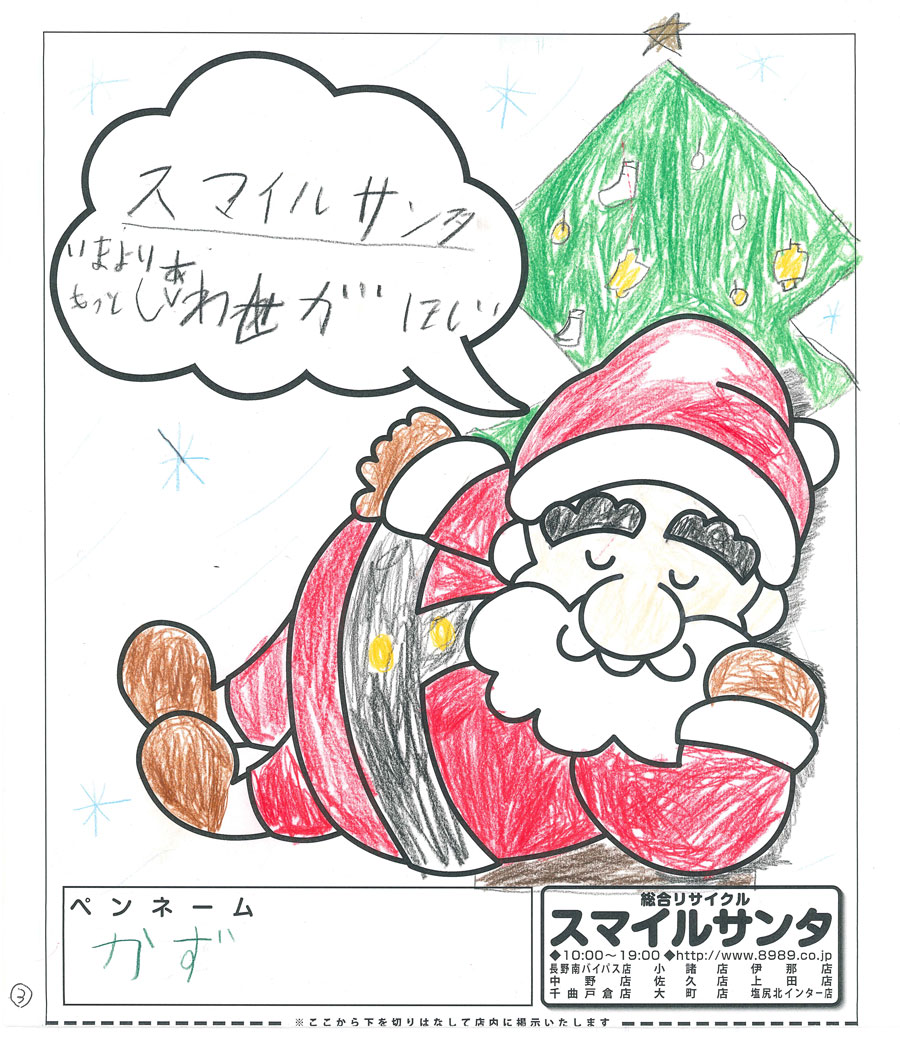 スマイルサンタ
いまより
もっと しあわせが にしい
ペンネーム
かず
総合リサイクル
スマイルサンタ
◆10:00～19:00 ◆http://www.8989.co.jp
長野南バイパス店 小諸店 伊那店
中野店 佐久店 上田店
千曲戸倉店 大町店 塩尻北インター店
③
※ここから下を切りはなして店内に掲示いたします